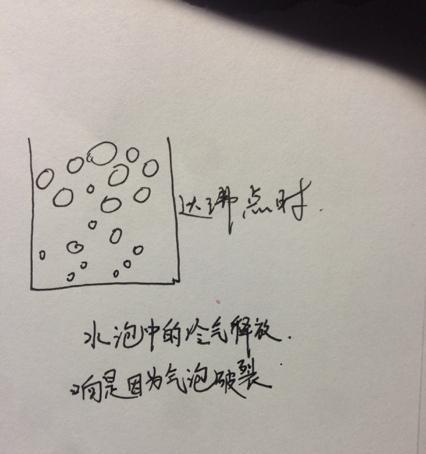 达沸点时.
水泡中的冷气释放.
响是因为气泡破裂